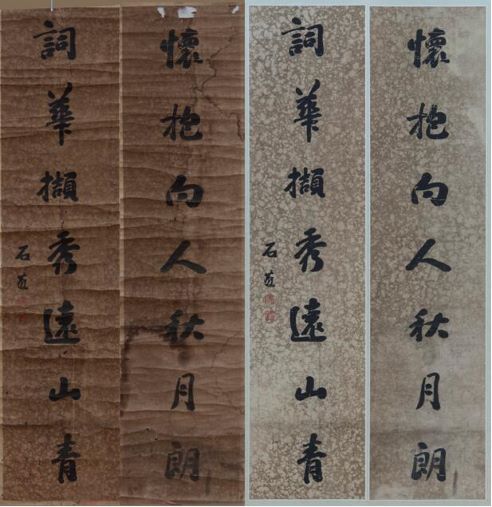 懷抱向人秋月朗
詞華擷秀遠山青
石菴
懷抱向人秋月朗
詞華擷秀遠山青
石菴